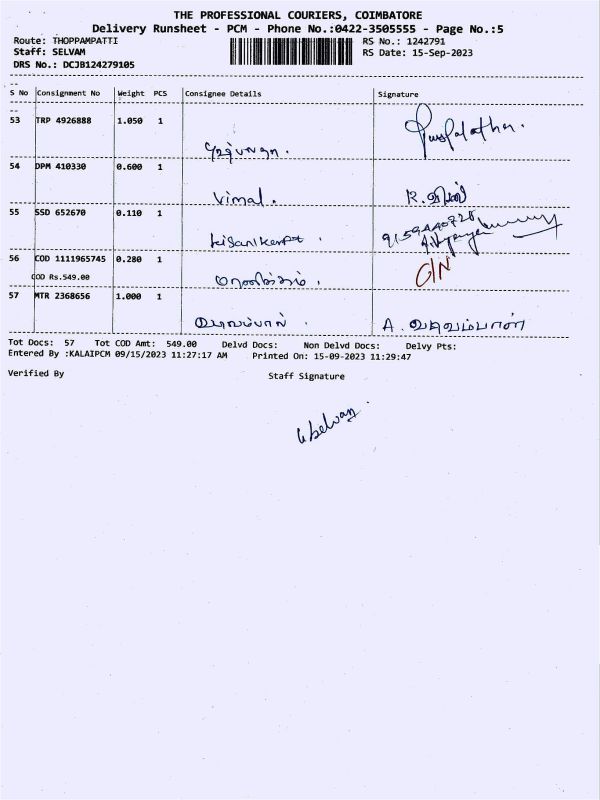 THE PROFESSIONAL COURIERS, COIMBATORE
Delivery Runsheet - PCM - Phone No.:0422-3505555 - Page No.:5
Route: THOPPAMPATTI RS No.: 1242791
Staff: SELVAM RS Date: 15-Sep-2023
DRS No.: DCJB124279105
S No Consignment No Weight PCS Consignee Details Signature
53 TRP 4926888 1.050 1
54 DPM 410330 0.600 1
Vimal.
55 SSD 652670 0.110 1
9159440728
56 COD 1111965745 0.280 1
COD Rs.549.00
C/N
57 MTR 2368656 1.000 1
Tot Docs: 57 Tot COD Amt: 549.00 Delvd Docs: Non Delvd Docs: Delvy Pts:
Entered By :KALAIPCM 09/15/2023 11:27:17 AM Printed On: 15-09-2023 11:29:47
Verified By Staff Signature